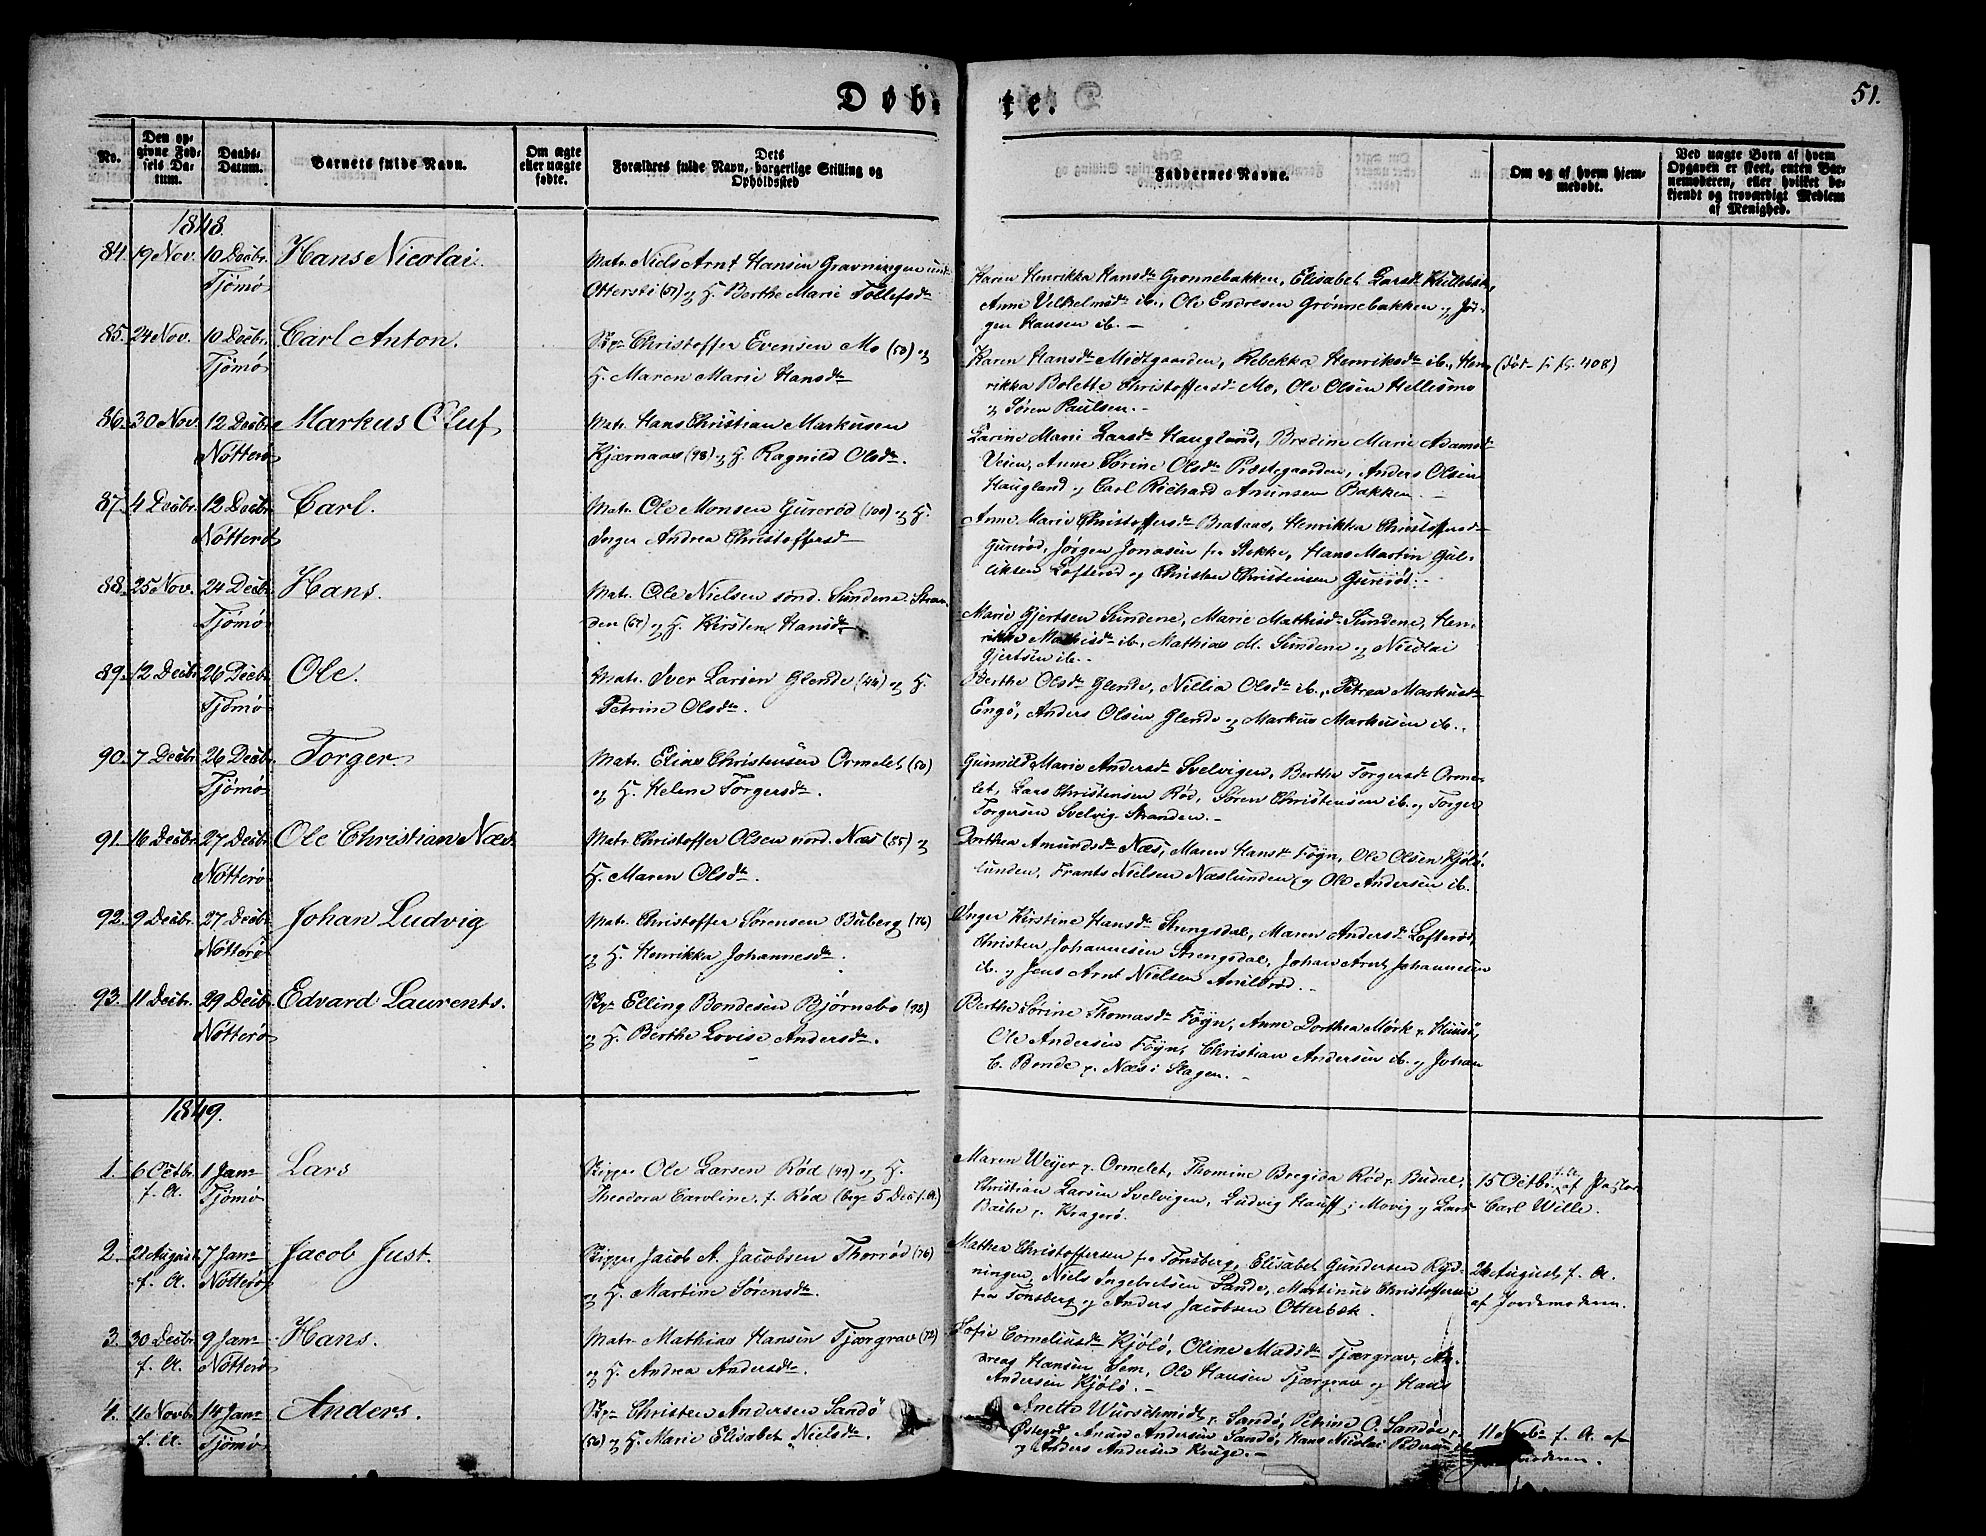 Døb-
te.
51.
No.
Den op-
givne Fød-
sels Da-
tum.
Daabs-
Datum.
Barnets fulde Navn.
Om ægte
eller uægte
fødte.
Dets
Forældres fulde Navn, borgerlige Stilling og
Opholdssted
Faddernes Navne.
Om og af hvem hjem-
medøbt.
Ved uægte Børn af hvem
Opgaven er skeet, enten Bar-
nemoderen, eller hvilket be-
kjendt og troværdigt Medlem
af Menighed.
1848.
84. 19 Nov. 10 Decbr. Hans Nicolai.
Tjömö
Matr. Niels Arnt Hansen Gravningen und.
(51) og H. Berthe Marie Tollefsdr
Karen Henrikka Hansdr Grønnebakken, Elisabet Larsdr
Anne Vilhelmsdr ib., Ole Endresen Grønnebakken og Jör-
gen Hansen ib. -
85. 24 Nov. 10 Decbr. Carl Anton.
Tjömö
Christoffer Evensen Mo (50) og
H. Maren Marie Hansdr
Karen Hansdr Midtgaarden, Rebekka Henriksdr ib., Hen-
rikka Bolette Christoffersd. Mo, Ole Olsen Hellismo
og Sören Paulsen. -
408)
86. 30 Nov. 12 Decbr. Markus Oluf
Nötterö
Matr. Hans Christian Markusen
Kjærnaas (98) og H. Ragnild Olsdr.
Larine Marie Larsdr Haugland, Bredine Marie Adamsdr
Veien, Anne Sörine Olsdr Præstegaarden, Anders Olsen
Haugland og Carl Richard Amunsen Bakken. -
87. 4 Decbr. 12 Decbr. Carl.
Nötterö
Matr. Ole Monsen Gurerød (100) og H.
Andrea Christoffersdr
Anne Marie Christoffersdr Brataas, Henrikka Christoffersdr
Gurerød, Jørgen Jonasen fra Stokke, Hans Martin Gul-
liksen Lofterød og Christen Christensen Gurerød. -
88. 25 Nov. 24 Decbr. Hans.
Tjömö
Matr. Ole Nielsen sönd. Sundene Stran-
den (67) og H. Kirsten Hansdr
Marie Gjertsen Sundene, Marie Mathisd. Sundene, Hen-
rikke Mathisdr ib., Mathias M. Sundene og Nicolai
Gjertsen ib. -
89. 12 Decbr. 26 Decbr. Ole.
Tjömö
Matr. Iver Larsen Glende (44) og H.
Petrine Olsdr.
Berthe Olsdr Glende, Nillia Olsdr ib., Petrea Markusdr
Engö, Anders Olsen Glende og Markus Markusen ib.
90. 7 Decbr. 26 Decbr. Torger.
Tjömö
Matr. Elias Christensen Ormelet (50)
og H. Helene Torgersdr.
Gunnild Marie Andersdr Svelvigen, Berthe Torgersdr Orme-
let, Lars Christensen Rød, Sören Christensen ib. og Torger
Torgersen Svelvig Stranden. -
91. 16 Decbr. 27 Decbr. Ole Christian Næs.
Nötterö
Matr. Christoffer Olsen nord. Næs (85) og
H. Maren Olsdr.
Dorthea Amundsdr Næs, Maren Hansdr Föyn, Ole Olsen Kjölö-
lunden, Frants Nielsen Næslunden og Ole Andersen ib.
92. 9 Decbr. 27 Decbr. Johan Ludvig
Nötterö
Matr. Christoffer Sörensen Buberg (76)
og H. Henrikka Johannesdr.
Inger Kirstine Hansdr Strengsdal, Maren Andersdr Lofterød,
Christen Johannesen Strengsdal, Johan Arnt Johannesen
ib. og Jens Arnt Nielsen
93. 11 Decbr. 29 Decbr. Edvard Laurents.
Nötterö
Elling Bondesen Björnebo (98)
og H. Berthe Lovise Andersdr.
Berthe Sörine Thomasdr Föyn, Anne Dorthea Mörk
Ole Andersen Föyn, Christian Andersen ib. og Johan
C. Bonde p. Næs i Slagen. -
1849.
1. 6 Octbr. 1 Janr Lars
f. A. Tjömö
Skipper Ole Larsen Rød (49) og H.
Theodora Caroline, f. Rød 5 Dec f. A.)
Maren Weyer p. Ormelet, Thomine Bregida Rød, Budal,
Christian Larsen Svelvigen, Ludvig Hauff i Movig og Lars
p. Kragerö.
15 Octbr. f. A. af Pastor
Carl Wille.
2. 21 August 7 Janr Jacob Just.
f. A. Nötterö
Skipper Jacob A. Jacobsen Thorrød (76)
og H. Martine Sörensdr.
Mathea Christoffersen fra Tönsberg, Elisabet Gundersen Ryd-
ningen, Niels Ingebretsen Sande, Martinus Christoffersen
fra Tönsberg og Anders Jacobsen Otterbek.
26 August f. A.
af Jordemoderen.
3. 30 Decbr. 9 Janr Hans.
f. A. Nötterö
Matr. Mathias Hansen Tjærgrav (72)
og H. Andrea Andersdr.
Sofie Corneliusdr Kjölö, Oline Madsdr Tjærgrav, An-
dreas Hansen Sem, Ole Hansen Tjærgrav og Hans
Andersen Kjölö. -
4. 11 Novb. 14 Janr Anders.
f. A. Tjömö
Christen Andersen Sandö
(50) og H. Marie Elisabet Nielsdr.
Anette Wurschmidt p. Sandö, Petrine O. Sandöe p.
Andersen Sandö, Hans Nicolai
og Anders Andersen Kruge. -
11 Novb. f. A. af